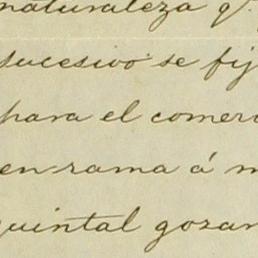 naturaleza q.
sucesivo se fij
para el comerc
en rama á m
quintal gozan